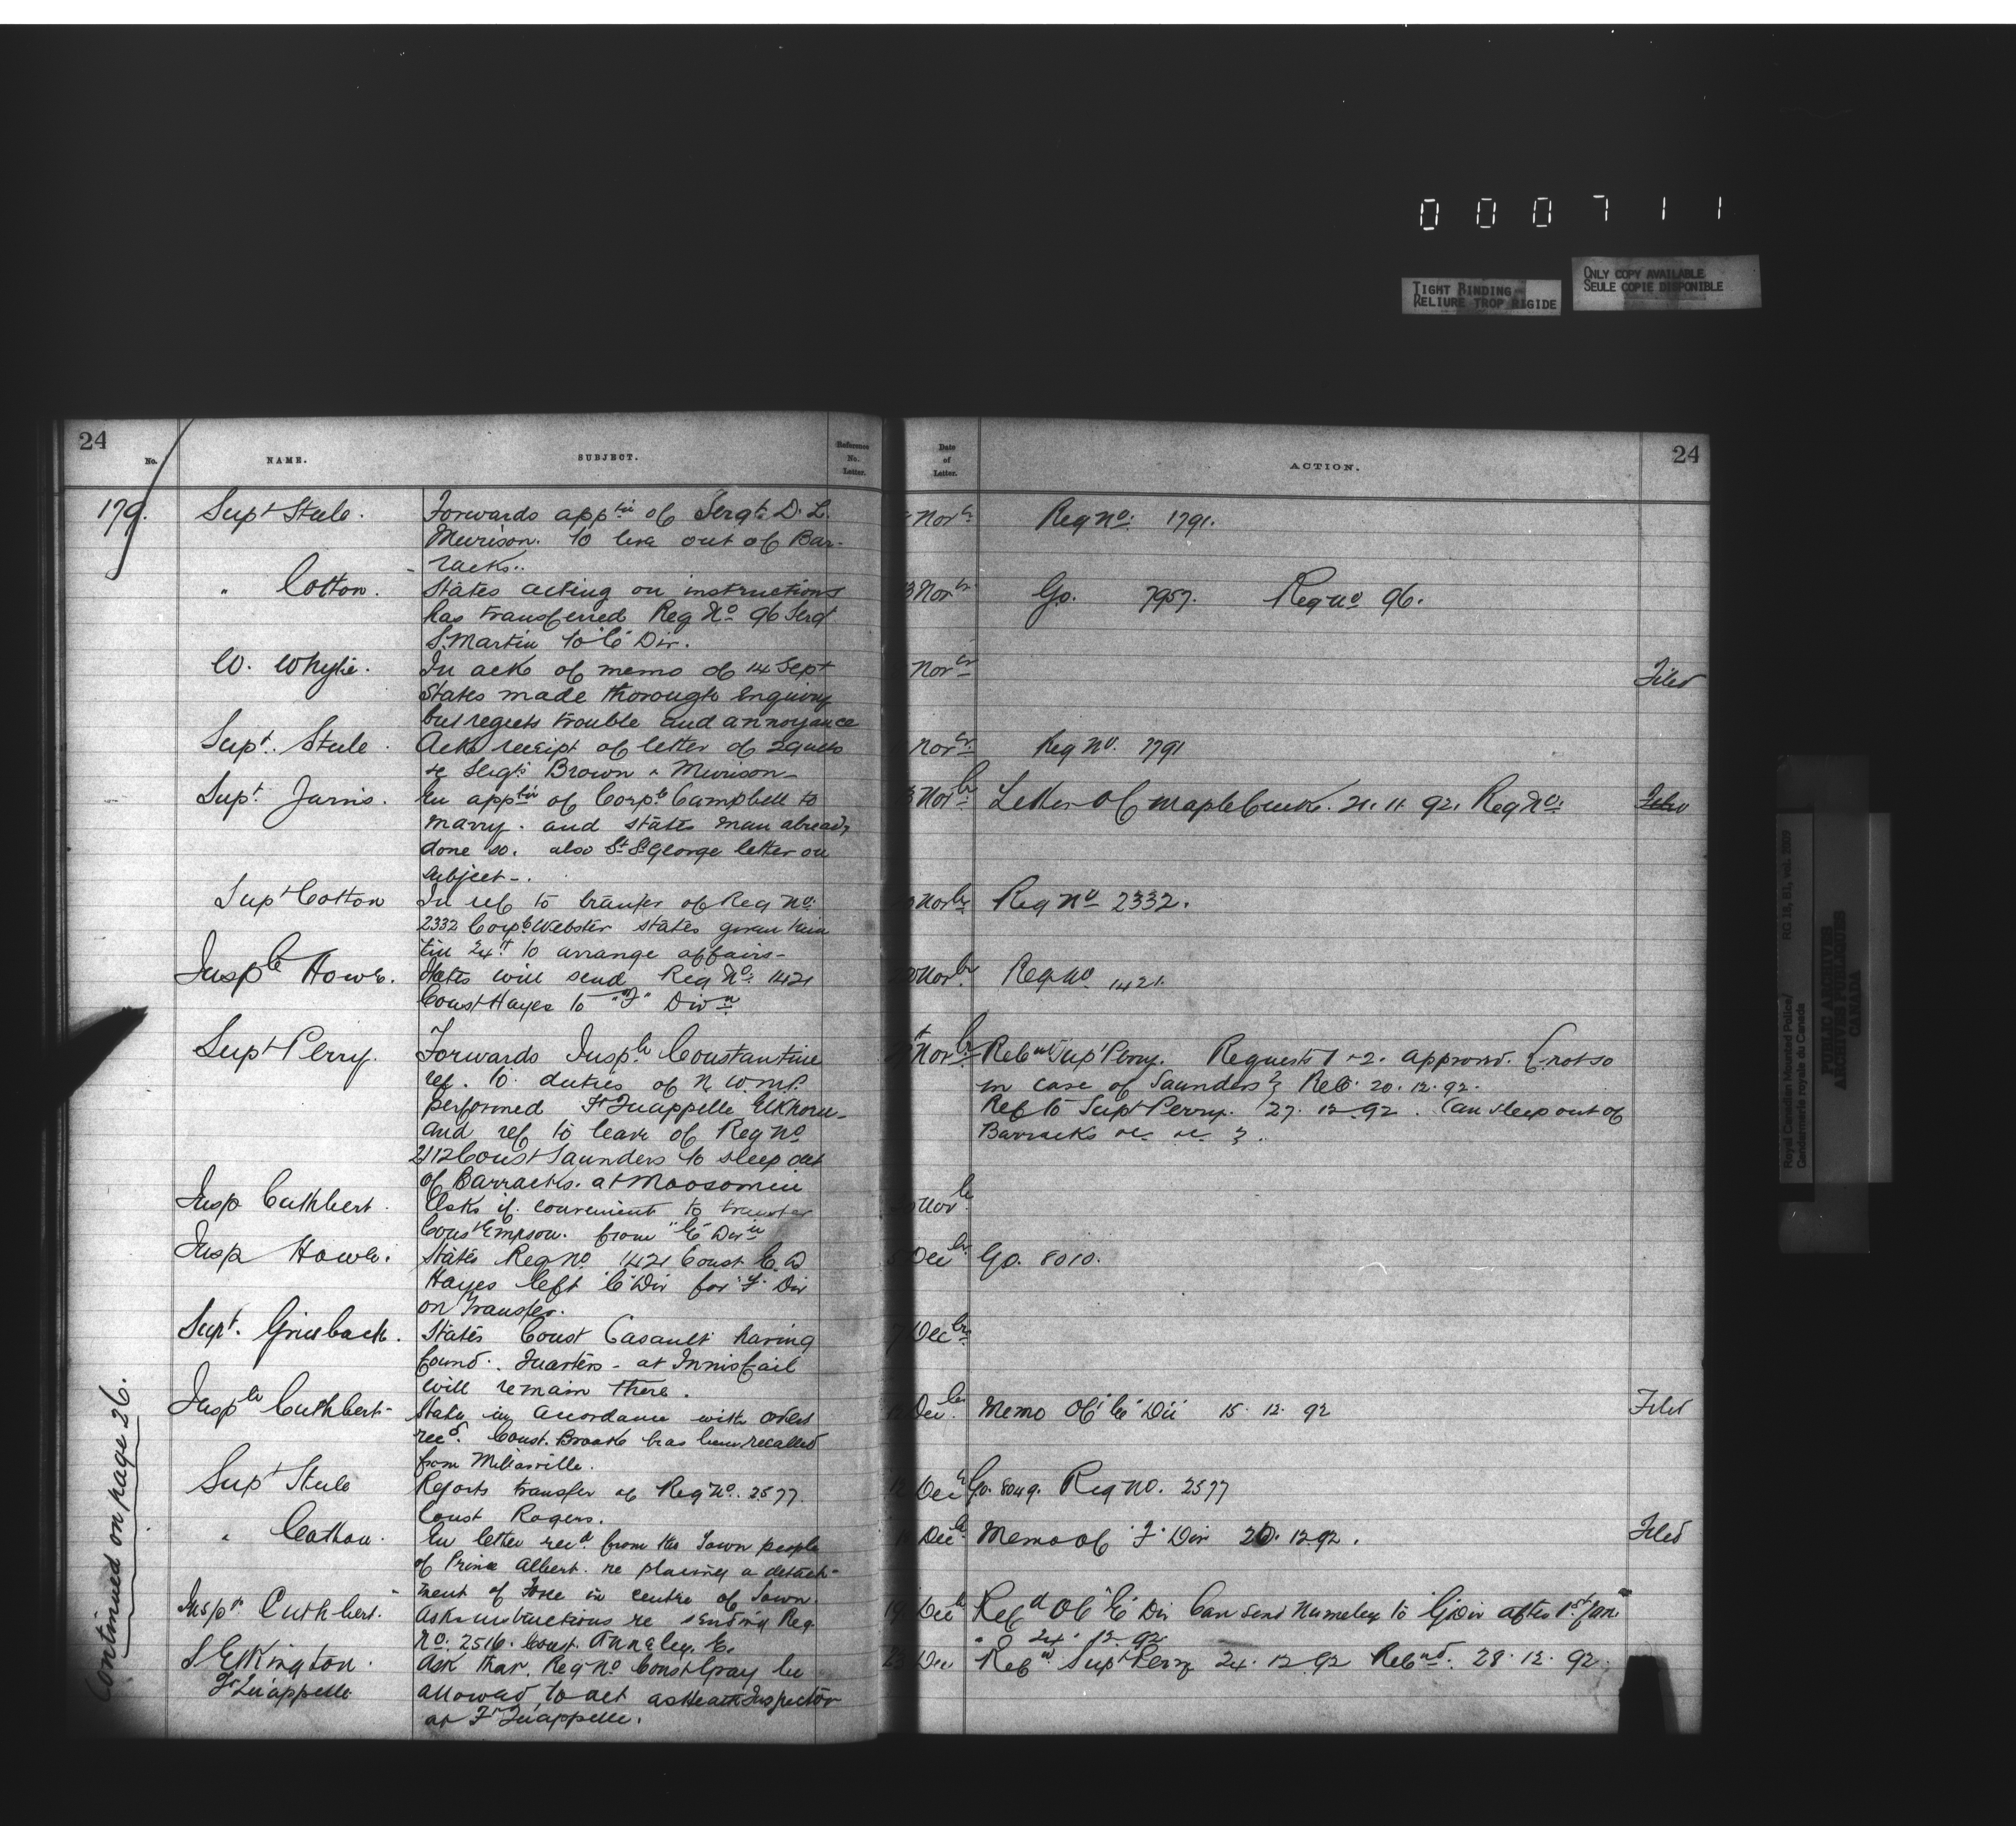 0 0 0 7 1 1
TIGHT BINDING
RELIURE TROP RIGIDE
ONLY COPY AVAILABLE
SEULE COPIE DISPONIBLE
24
No.
NAME.
SUBJECT.
Reference No. Letter.
Date of Letter.
ACTION.
24
179. Supt Steele. Forwards apptn of Sergt D. L. Novr Reg No. 1791.
Murison. to live out of Bar-
racks.
" Cotton. States acting on instructions 3 Novr Go. 7957. Reg no 96.
has transferred Reg No 96 Sergt
S. Martin to "C" Div.
W. Whyte. In ack of memo of 14 Sept Novr Filed
States made thorough enquiry
but regrets trouble and annoyance
Supt. Steele. Acks receipt of letter of 29 ulto Novr Reg No. 1791
re Sergts Brown & Murison
Supt. Jarvis. In apptn of Corpl Campbell to Novbr Letter of Maple Creek. 21.11.92. Reg No. Filed
marry. and states man already
done so. also St. George letter on
subject.
Supt Cotton In ref to transfer of Reg No. Novbr Reg No 2332.
2332 Corpl Webster states given him
till 24th to arrange affairs-
Inspr Howe. States will send Reg No. 1421 Novbr. Reg no 1421.
Const Hayes to "F" Divn
Supt Perry. Forwards Inspr Constantine Novbr Refd Supt Perry. Requests 1 & 2. approved. (not so
ref. to duties of N W M P. in case of Saunders) Ref. 20.12.92.
performed Ft Quappelle Elkhorn- Ref to Supt Perry. 27.12.92. Can sleep out of
and ref to leave of Reg No Barracks &c &c
2112 Const Saunders to sleep out
of Barracks. at Moosomin
Insp Cuthbert. Asks if convenient to transfer Novbr
Const Empson. from "E" Divn
Insp Howe. States Reg no 1421 Const E. A Decbr Go. 8010.
Hayes left "C" Div for "F" Div
on transfer.
Supt. Griesbach. States Const Casault having 7 Decbr
found. Quarters - at Innisfail
will remain there.
Inspr Cuthbert- States in accordance with orders Decbr. Memo Of "E" Div 15.12.92 Filed
recd. Const. Brooke has been recalled
from Millarville.
Supt Steele Reports transfer of Reg No. 2577. 12 Decr Go. 8049. Reg no. 2577
Const Rogers.
" Cotton. En letter recd from the Town people Decbr Memo of "F" Div 20.12.92. Filed
of Prince Albert. re placing a detach-
ment of Force in centre of Town.
Inspr Cuthbert. Asks instructions re sending Reg 19 Decbr Refd Of "E" Div Can send to G Div after 1st Jany
No. 2516. Const. Anneley. E. " 24.12.92
S Elkington. Ask that Reg No Const Gray be 23 Dec Refd Supt Perry 24.12.92 Refnd. 28.12.92.
Ft Qu'appelle allowed to act as Health Inspector
at Ft Quappelle.
Continued on page 26.
Royal Canadian Mounted Police/
Gendarmerie royale du Canada
RG 18, B1, vol. 2039
PUBLIC ARCHIVES
ARCHIVES PUBLIQUES
CANADA